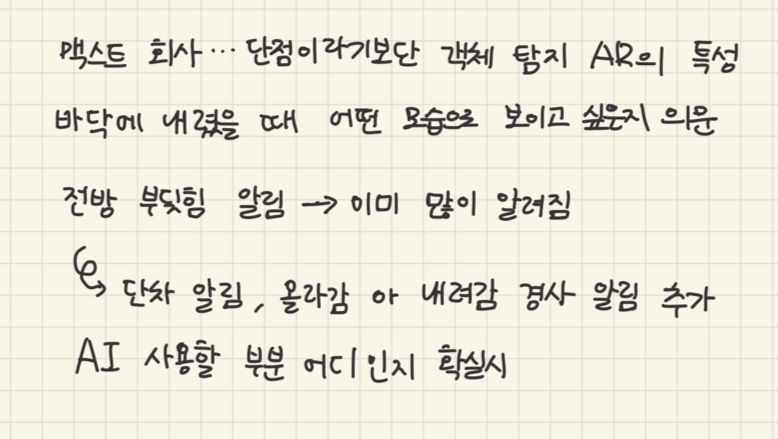 맥스트 회사… 단점이라기보단 객체 탐지 AR의 특성
바닥에 내렸을 때 어떤 모습으로 보이고 싶은지 의문
전방 부딪힘 알림 → 이미 많이 알려짐
↳ 단차 알림, 올라감 아 내려감 경사 알림 추가
AI 사용할 부분 어디인지 확실시